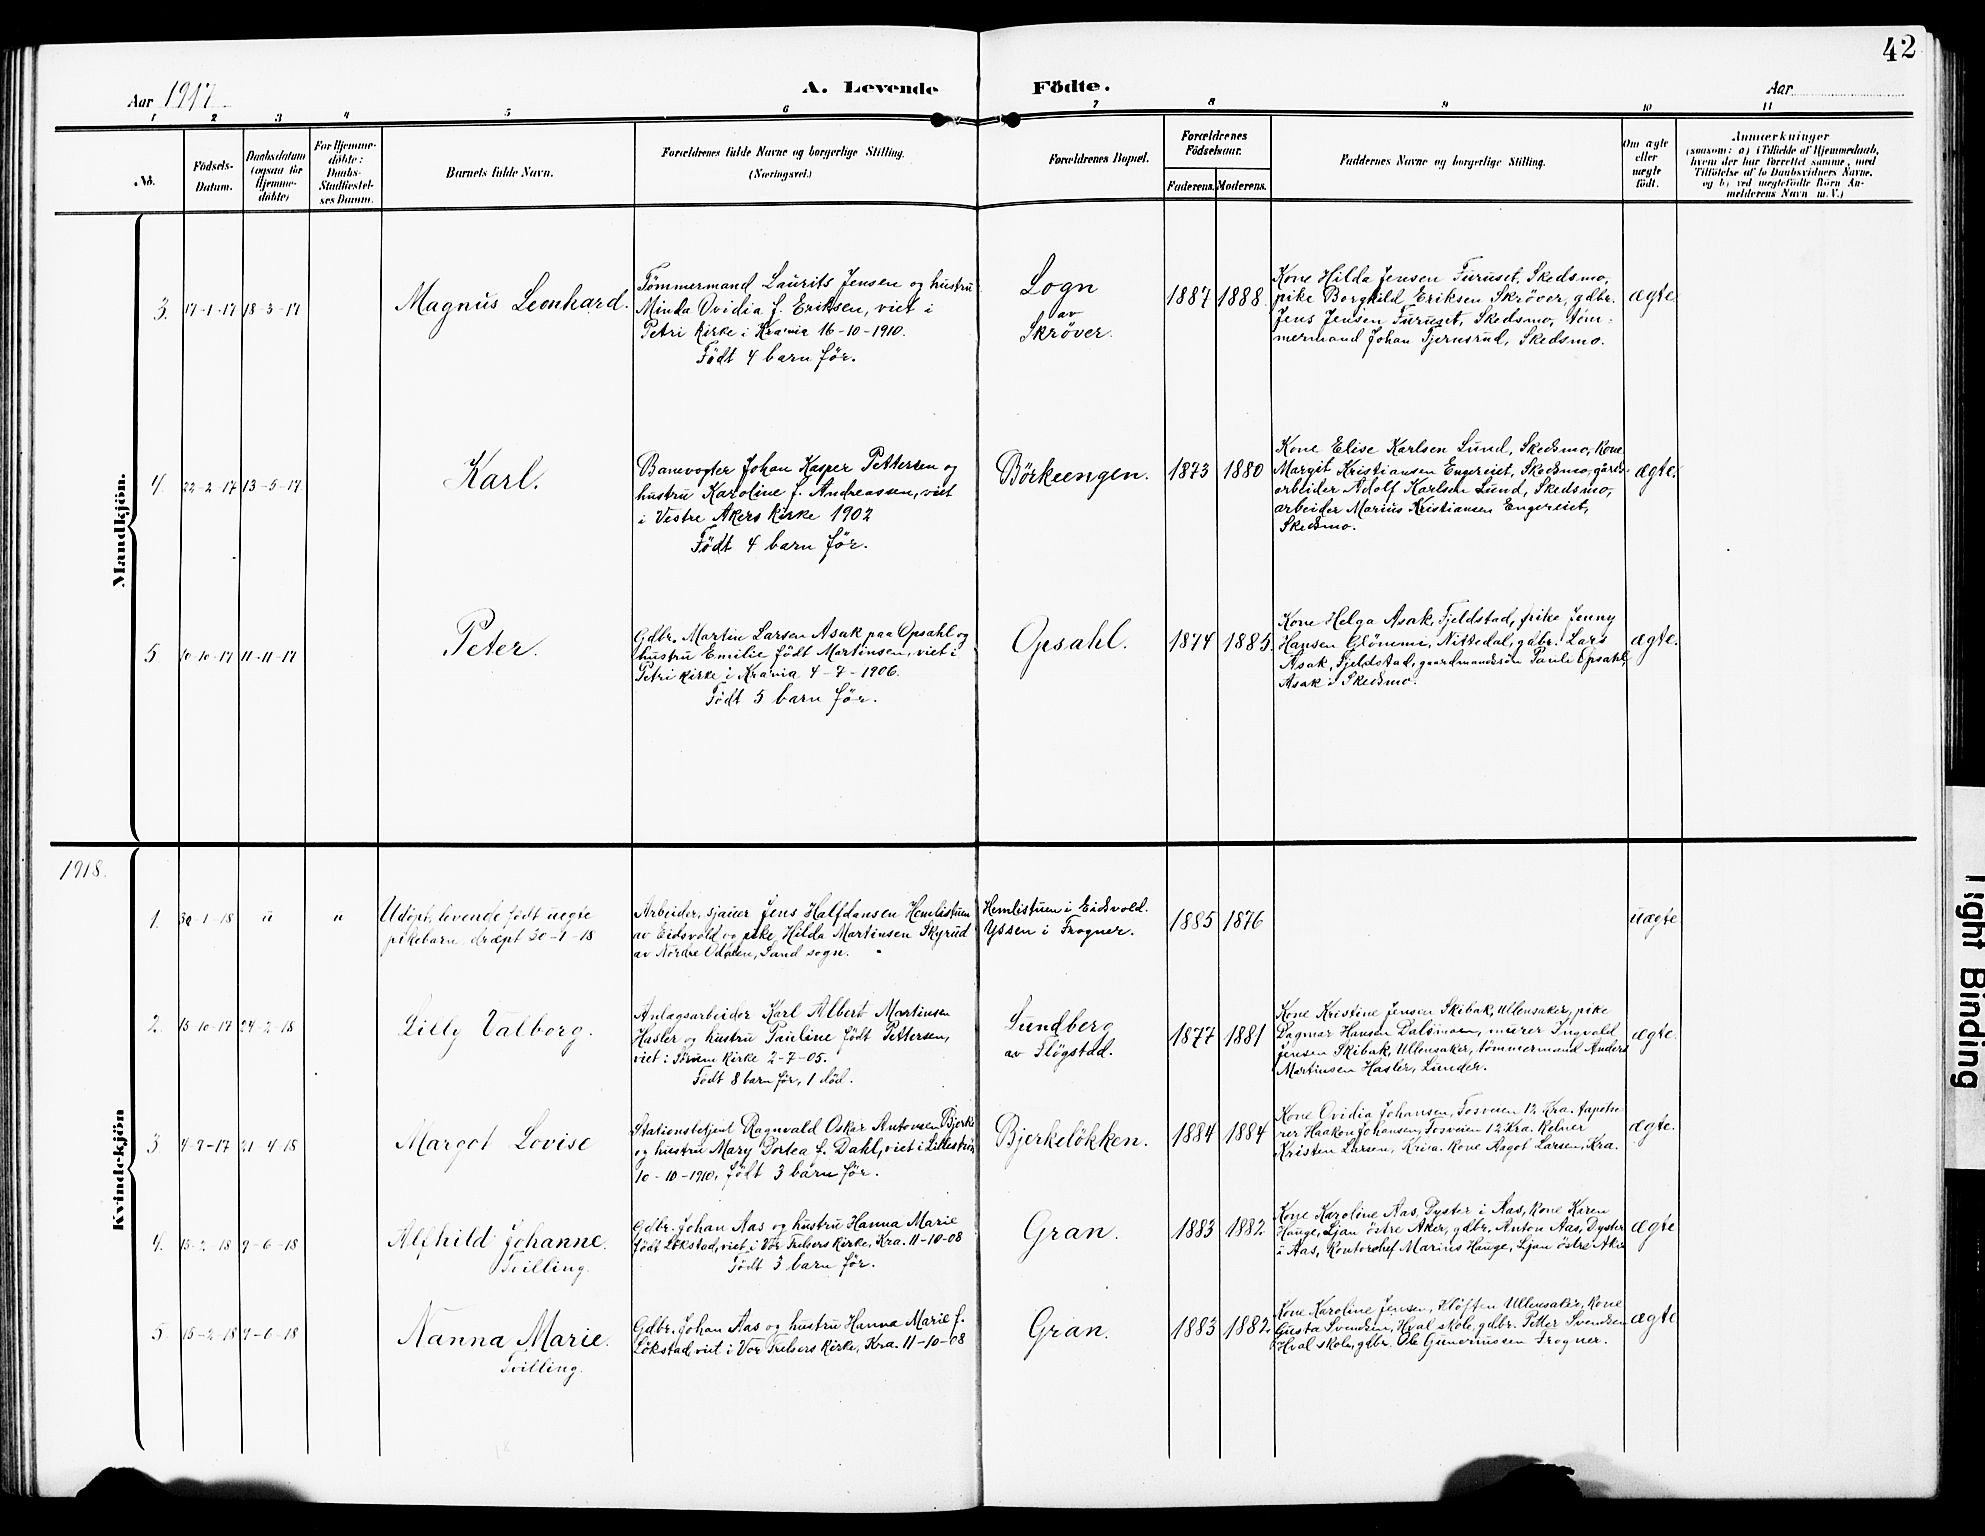 42
Aar 1917
A. Levende Födte.
Aar
1 2 3 4 5 6 7 8 9 10 11
No.
Födsels-
Datum.
Daabsdatum
(ogsaa for
Hjemme-
döbte)
For Hjemme-
döbte:
Daabs-
Stadfæstel-
ses Datum.
Barnets fulde Navn.
Forældrenes fulde Navne og borgerlige Stilling.
(Næringsvei.)
Forældrenes Bopæl.
Forældrenes
Födselsaar.
Faderens. Moderens.
Faddernes Navne og borgerlige Stilling.
Om ægte
eller
uægte
födt.
Anmærkninger
(saasom: a) i Tilfælde af Hjemmedaab,
hvem der har forrettet samme, med
Tilföielse af to Daabsvidners Navne,
og b) ved uægtefödte Börn An-
melderens Navn m. V.)
Mandkjön.
3. 17-1-17 18-3-17
Magnus Leonhard.
Tømmermand Laurits Jensen og hustru
Minda Ovidia f. Eriksen, viet i
Petri kirke i Kra'nia 16-10-1910.
Født 4 barn før.
Logn
av
Skrøver.
1887 1888
Kone Hilda Jensen Furuset, Skedsmo,
pike Borghild Eriksen Skrøver, gdbr.
Jens Jensen Furuset, Skedsmo, tøm-
mermand Johan Tjernsrud, Skedsmo.
ægte
4. 22-2-17 13-5-17
Karl.
Banevogter Johan Kasper Pettersen og
hustru Karoline f. Andreassen, viet
i Vestre Akers kirke 1902
Født 4 barn før.
Börkeengen.
1873 1880
Kone Elise Karlsen Lund, Skedsmo, kone
Margit Kristiansen Engereiet, Skedsmo, gårds-
arbeider Adolf Karlsen Lund, Skedsmo,
arbeider Marius Kristiansen Engereiet,
Skedsmo.
ægte.
5 10-10-17 11-11-17
Peter.
Gdbr. Martin Larsen Asak paa Opsahl og
hustru Emilie født Martinsen, viet i
Petri kirke i Kra'nia 4-7-1906.
Født 5 barn før.
Opsahl.
1874 1885.
Kone Helga Asak, Fjeldstad, pike Jenny
Hansen Glömmi, Nittedal, gdbr. Lars
Asak, Fjeldstad, gaardmandssøn Paul Opsahl,
Asak i Skedsmo.
ægte.
1918.
Kvindekjön
1. 30-1-18 " "
Udöpt, levende født uegte
pikebarn, dræpt 30-1-18
Arbeider, sjauer Jens Halfdansen Hemlistuen
av Eidsvold og pike Hilda Martinsen Skyrud
av Nordre Odalen, Sand sogn.
Hemlistuen i Eidsvold.
Yssen i Frogner.
1885 1876
uægte
2. 15-10-17 24-2-18
Lilly Valborg.
Anlægsarbeider Karl Albert Martinsen
Hasler og hustru Pauline født Pettersen,
viet i Sørum kirke 2-7-05.
Født 8 barn før, 1 död.
Sundberg
av Fløgstad.
1877 1881
Kone Kristine Jensen Skibak, Ullensaker, pike
Dagmar Hansen Dalsmoen, murer Ingvald
Jensen Skibak, Ullensaker, tømmermand Anders
Martinsen Hasler, Lunder.
ægte.
3 4-9-17 21-4-18
Margot Lovise
Stationsbetjent Ragnvald Oskar Antonsen Bjerke
og hustru Mary Dortea f. Dahl, viet i Lillestrøm
10-10-1910, født 3 barn før.
Bjerkelökken.
1884 1884
Kone Ovidia Johansen, Fosveien 12, Kra. tapetse-
rer Haakon Johansen, Fosveien 12 Kra. Kelner
Kristen Larsen, Kr.ia. kone Aagot Larsen, Kra.
ægte.
4. 15-2-18 9-6-18
Alfhild Johanne.
Tvilling.
Gdbr. Johan Aas og hustru Hanna Marie
født Løkstad, viet i Vor Frelsers kirke, Kra. 11-10-08
Født 3 barn før.
Gran.
1883 1882
Kone Karoline Aas, Dyster i Aas, kone Karen
Hauge, Ljan østre Aker, gdbr. Anton Aas, Dyster
i Aas, Kontorchef Marius Hauge, Ljan østre Aker
ægte
5. 15-2-18 9-6-18
Nanna Marie.
Tvilling.
Gdbr. Johan Aas og hustru Hanna Marie f.
Løkstad, viet i Vor Frelsers kirke, Kra. 11-10-08
Gran.
1883 1882.
Kone Karoline Jensen, Kløften Ullensaker, kone
Gusta Svendsen, Hval skole, gdbr. Petter Svendsen
Hval skole, gdbr. Ole Gundersen Frogner.
ægte
Tight Binding